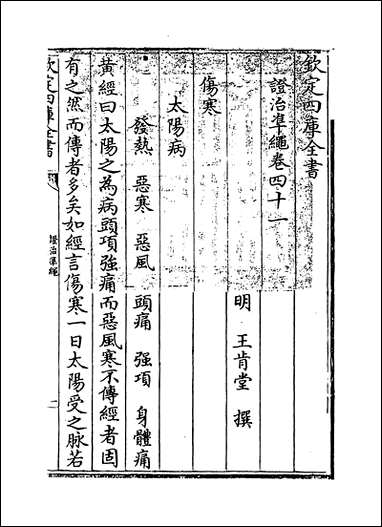 欽定四庫全書
證治準繩卷四十一
明 王肯堂 撰
傷寒
太陽病
發熱 惡寒 惡風 頭痛 強項 身體痛
黃經曰太陽之為病頭項強痛而惡風寒不傳經者固
有之然而傳者多矣如經言傷寒一日太陽受之脉若
欽定四庫全書
證治準繩
一